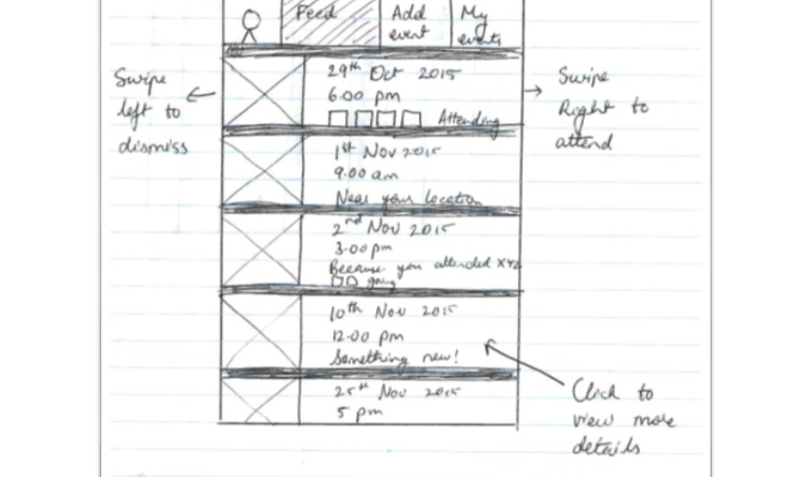 Feed
Add
event
My
events
Swipe
left to
dismiss
29th Oct 2015
6.00 pm
Attending
Swipe
Right to
attend
1st Nov 2015
9.00 am
Near your location
2nd Nov 2015
3.00 pm
Because you attended XYZ
going
10th Nov 2015
12.00 pm
Something new!
25th Nov 2015
5 pm
Click to
view more
details